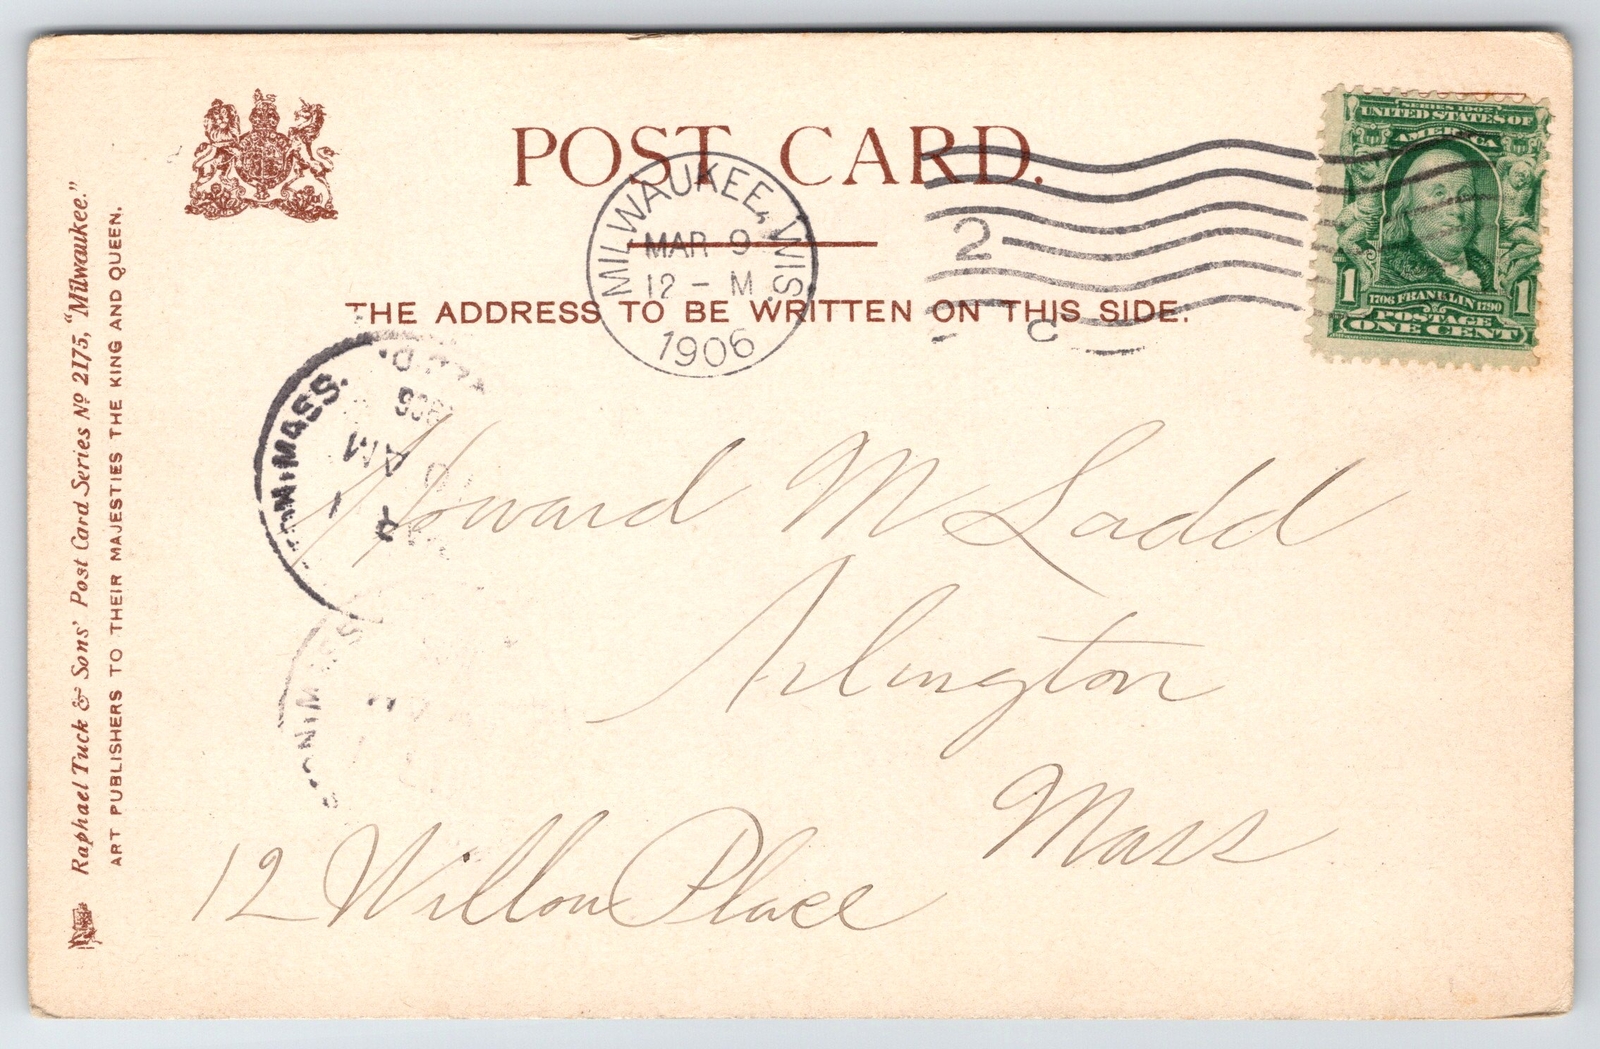 POST CARD.
THE ADDRESS TO BE WRITTEN ON THIS SIDE.
MILWAUKEE, WIS.
MAR 9
12 – M
1906
2
C
SERIES 1902
UNITED STATES OF
AMERICA
1706 FRANKLIN 1790
1 1
POSTAGE
ONE CENT
MASS.
1906
AM
1
Howard M Ladd
Arlington
Mass
12 Willow Place
Raphael Tuck & Sons' Post Card Series No 2175, "Milwaukee."
ART PUBLISHERS TO THEIR MAJESTIES THE KING AND QUEEN.